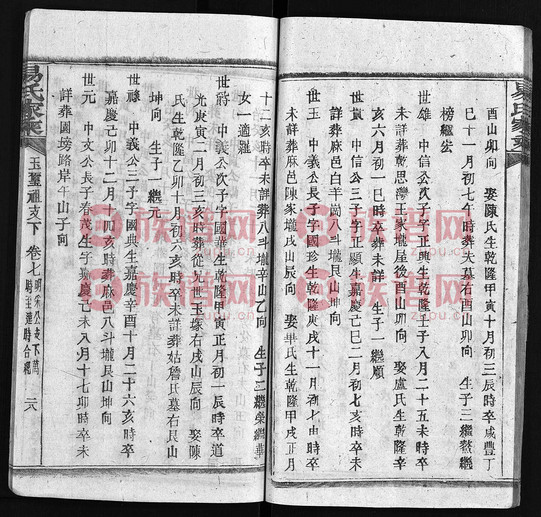 酉山卯向　娶陳氏生乾隆甲寅十月初三辰時卒咸豐丁
巳十一月初七午時葬夫墓右酉山卯向　生子三繼鰲繼
榜繼
世雄　中信公次子字正興生乾隆壬子八月二十五未時卒
未詳葬乾思灣王家壠屋後酉山卯向　娶盧氏生乾隆辛
亥六月初一巳時卒葬未詳　生子一繼順
世貴　中信公三子字正顯生嘉慶己巳二月初七亥時卒未
詳葬麻邑白羊崗八斗壠艮山坤向
世玉　中義公長子字國珍生乾隆庚戌十一月初七由時卒
未詳葬麻邑陳家壠戌山辰向　娶畢氏生乾隆甲戌正月
十二亥時卒未詳葬八斗壠辛山乙向　生子二繼榮繼華
女一適羅
世蔣　中義公次子字國華生乾隆甲寅正月初一辰時卒道
光庚寅二月初三亥時葬從公玉塚右戌山辰向　娶陳
氏生乾隆乙卯十月初六亥時卒未詳葬姑詹氏墓右艮山
坤向　生子一繼元
世祿　中義公三子字國典生嘉慶辛酉十月二十六亥時卒
嘉慶己卯十二月初四亥時葬麻邑八斗壠艮山坤向
世元　中文公長子春茂生子嘉慶己未八月十七卯時卒未
詳葬園塝路岸午山子向
易氏家乘
玉璽祖支下　卷七
二八
族谱网